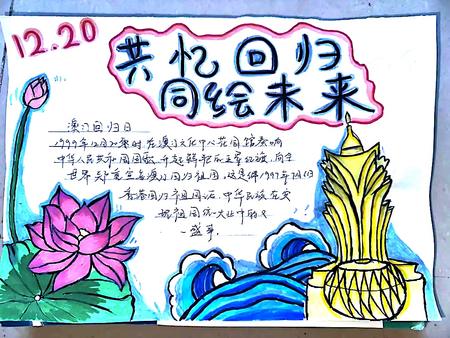 12.20
共忆回归
同绘未来
澳门回归日
1999年12月20零时在澳门文化中心花园馆奏响
中华人民共和国国歌,升起鲜艳五星红旗,向全
世界郑重宣告澳门回归祖国,这是继1997年7月1日
香港回归祖国后,中华民族在实
现祖国统一大业中的又
一盛事。